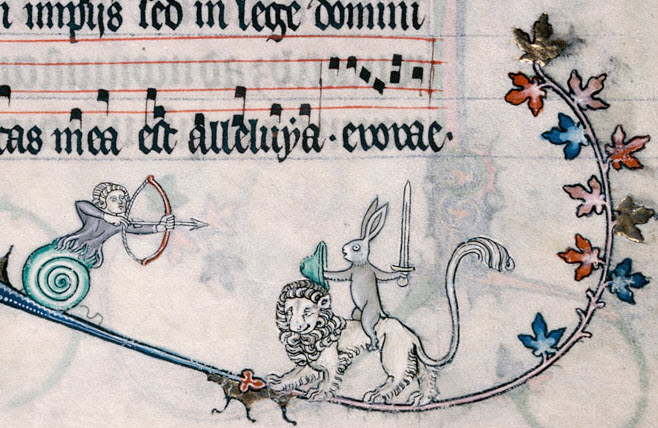 i impijs sed in lege domini
tas mea est alleluya · evovae ·